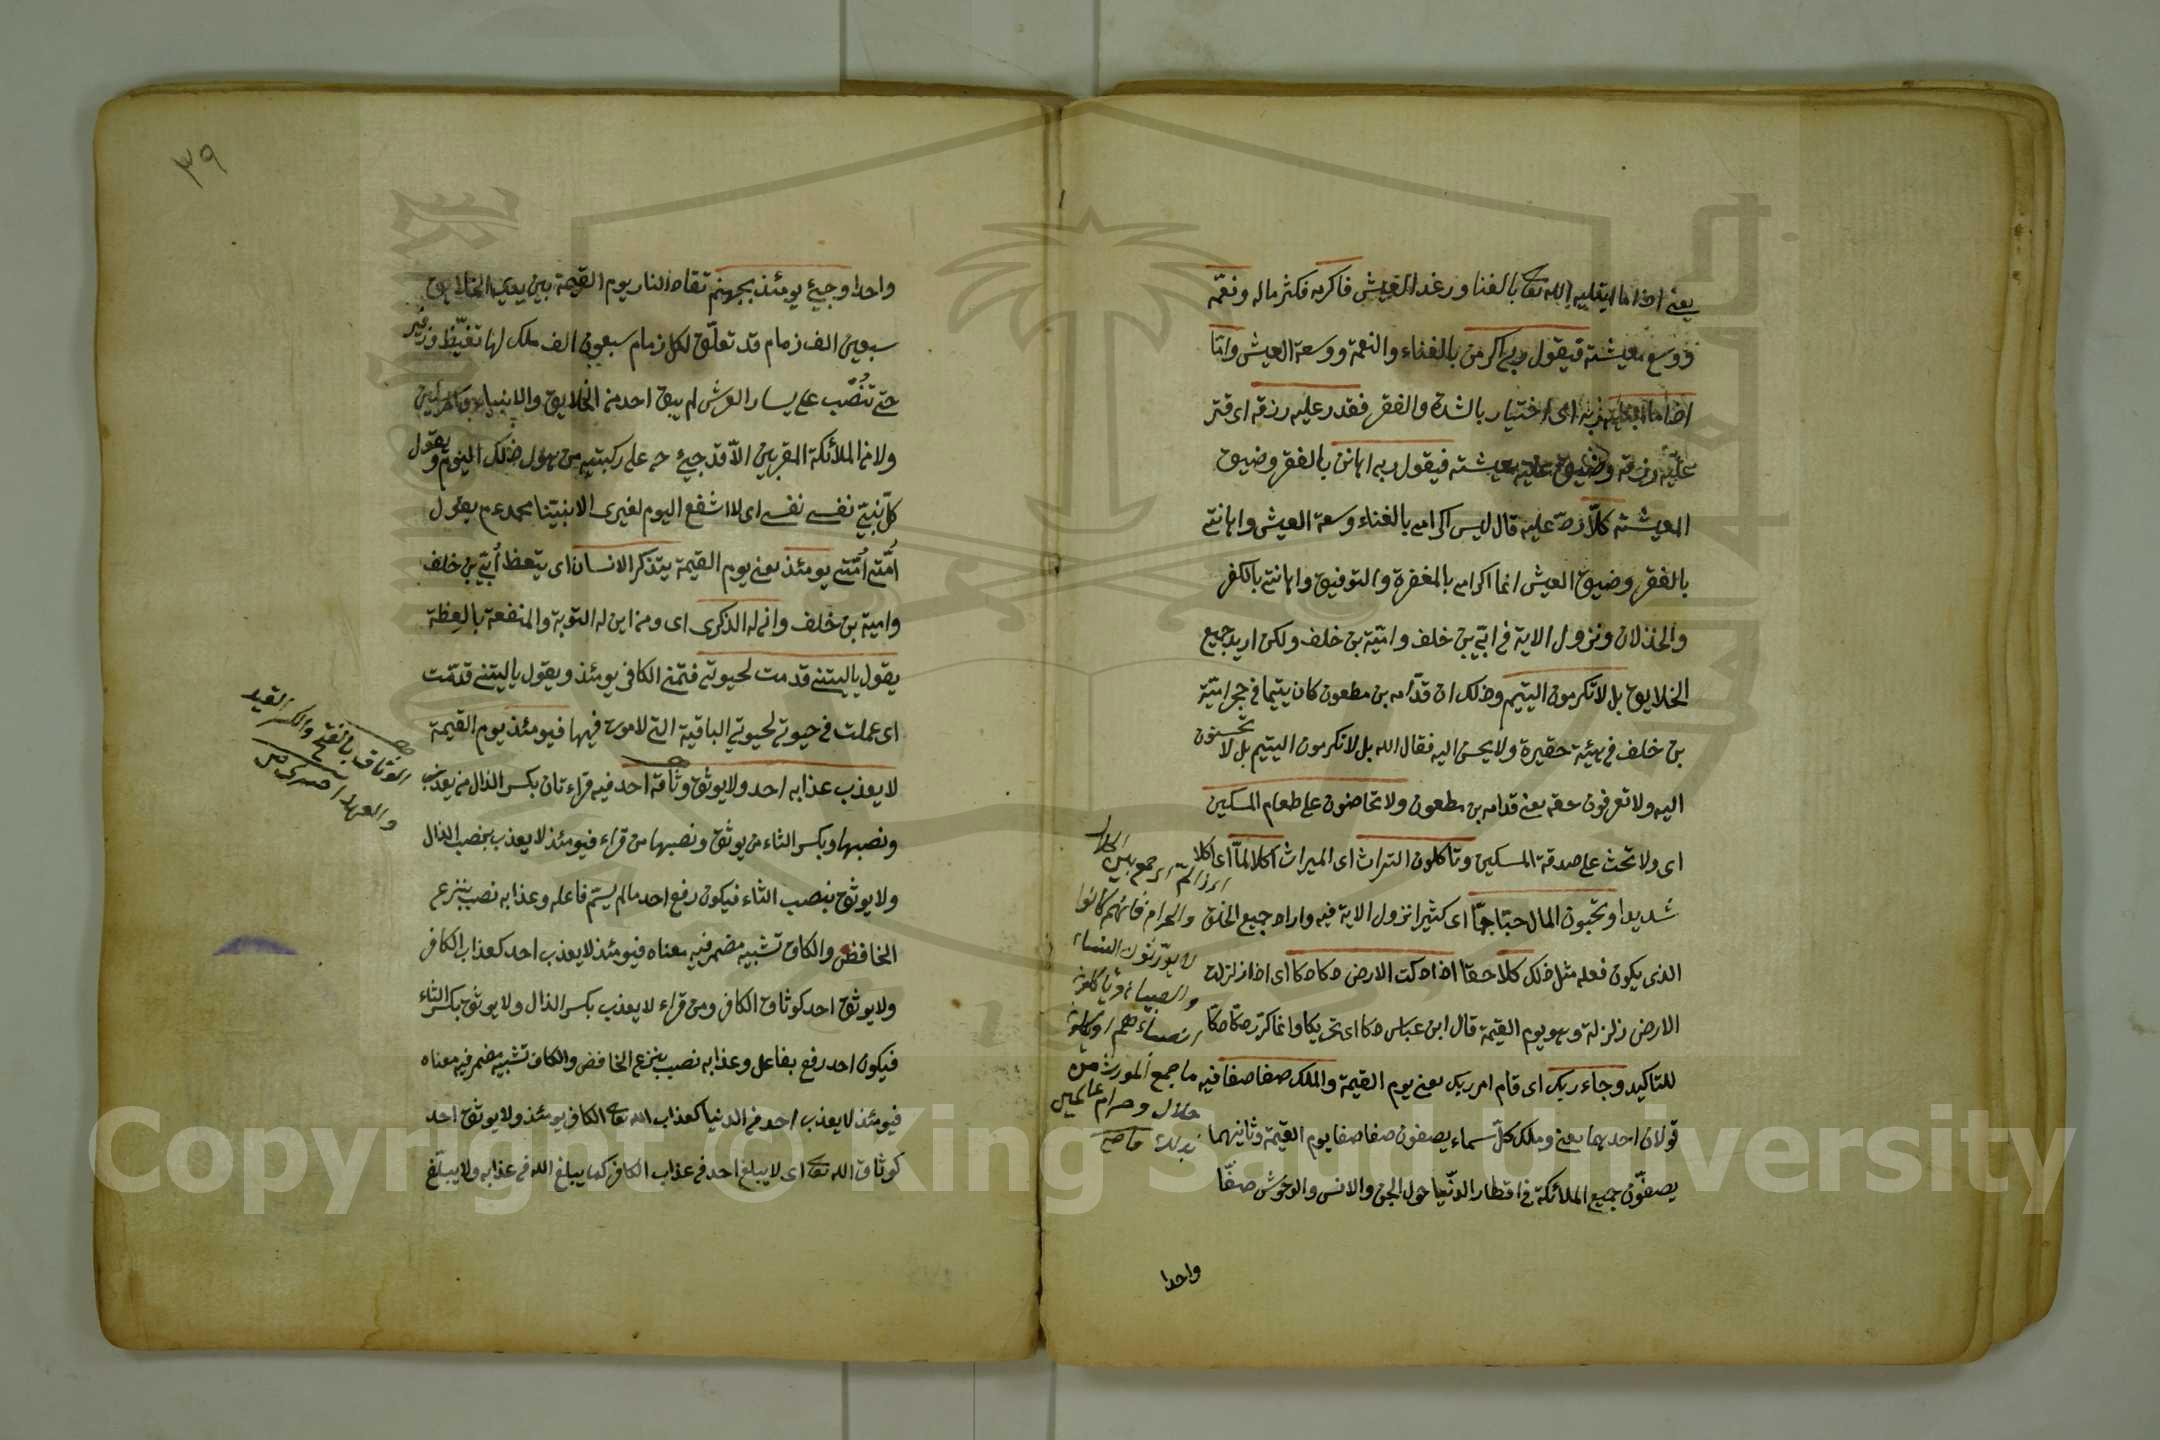 يعنى اذا ما ابتليه الله تعا بالغنا ورغد العيش فاكرمه فكثر ماله ونعّمه
ووسع معيشته فيقول ربى اكرمن بالغناء والنعمة ووسعة العيش وامّا
اذا ما ابتليه ربه اى اختيار بالشدة والفقر فقدر عليه رزقه اى قتر
عليه رزقه وضيق عليه معيشته فيقول ربى اهانن بالفقر وضيق
المعيشته كلّا ردّ عليه قال ليس اكرامى بالغناء وسعة العيش واهانتى
بالفقر وضيق العيش انما اكرامى بالمغفرة والتوفيق واهانتى بالكفر
والخذلان ونزول الاية فى ابى بن خلف وامية بن خلف ولكن اريد جميع
الخلايق بل لا تكرمون اليتيم وذلك ان قدامه بن مظعون كان يتيما فى حجر امية
بن خلف فى هيئة حقيرة ولا يحسن اليه فقال الله بل لا تكرمون اليتيم بل لا تحسنون
اليه ولا تعرفون حقه يعنى قدامه بن مظعون ولا تحاضون على طعام المسكين
اى ولا تحث على صدقة المسكين وتأكلون التراث اى الميراث اكلا لمّا اى اكلا
شديدا وتحبون المال حبّا جمّا اى كثيرا نزول الاية فيه واراد جميع الخلق
الذى يكون فعله مثل ذلك كلا حقا اذا دكت الارض دكا دكا اى اذا زلزلت
الارض زلزلة وهو يوم القيمة قال ابن عباس دكا اى تحريكا وانما كرّر دكّا دكّا
للتاكيد وجاء ربك اى قام امر ربك يعنى يوم القيمة والملك صفا صفا فيه
قولان احدهما يعنى وملك كلّ سماء يصفون صفا صفا يوم القيمة وثانيهما
يصفّون جميع الملائكة فى اقطار الدنيا حول الجن والانس والوحوش صفّا
والحرام فانهم كانوا
لا يورّثون النساء
والصبيان ويأكلون
انصباءهم او يأكلون
ما جمع المورث من
حلال وحرام عالمين
بذلك قاضى
واحدا
٣٩
واحدا وجىء يومئذ بجهنم تقاد النار يوم القيمة بين يدى الخلايق
سبعين الف زمام قد تعلّق لكل زمام سبعون الف ملك لها تغيّظ وزفير
حتى تُنصَب على يسار العرش لم يبق احد من الخلايق والانبياء والمرسلين
ولا من الملائكة المقربين الّا قد جىء على ركبتيه من هول ذلك اليوم ويقول
كلّ نبىّ نفسى نفسى اى لا اشفع اليوم لغيرى الا نبيّنا محمد عم يقول
اُمّتى اُمّتى يومئذ يعنى يوم القيمة يتذكر الانسان اى يتعظ اُبىّ بن خلف
وامية بن خلف وانى له الذكرى اى ومن اين له التوبة والمنفعة بالعِظة
يقول ياليتنى قدمت لحيوتى فتمنى الكافر يومئذ ويقول ياليتنى قدّمت
اى عملت فى حيوتى لحيوتى الباقية التى لا موت فيها فيومئذ يوم القيمة
لا يعذب عذابه احد ولا يوثق وثاقه احد فيه قراءتان بكسر الذال من يعذب
ونصبها وبكسر الثاء من يوثق ونصبها من قراء فيومئذ لا يعذب بنصب الذال
ولا يوثق بنصب الثاء فيكون رفع احد مالم يسمّ فاعله وعذابه نصب بنزع
الخافض والكاف تشبيه مضمر فيه معناه فيومئذ لا يعذب احد كعذاب الكافر
ولا يوثق احد كوثاق الكافر ومن قراء لا يعذب بكسر الذال ولا يوثق بكسر الثاء
فيكون احد رفع بفاعل وعذابه نصب بنزع الخافض والكاف تشبيه مضمر فيه معناه
فيومئذ لا يعذب احد فى الدنيا كعذاب الله تعا الكافر يومئذ ولا يوثق احد
كوثاق الله تعا اى لا يبلغ احد فى عذاب الكافر كما يبلغ الله فى عذابه ولا يبلّغ
الوثاق بالفتح والكسر القيد
Copyright © King Saud University